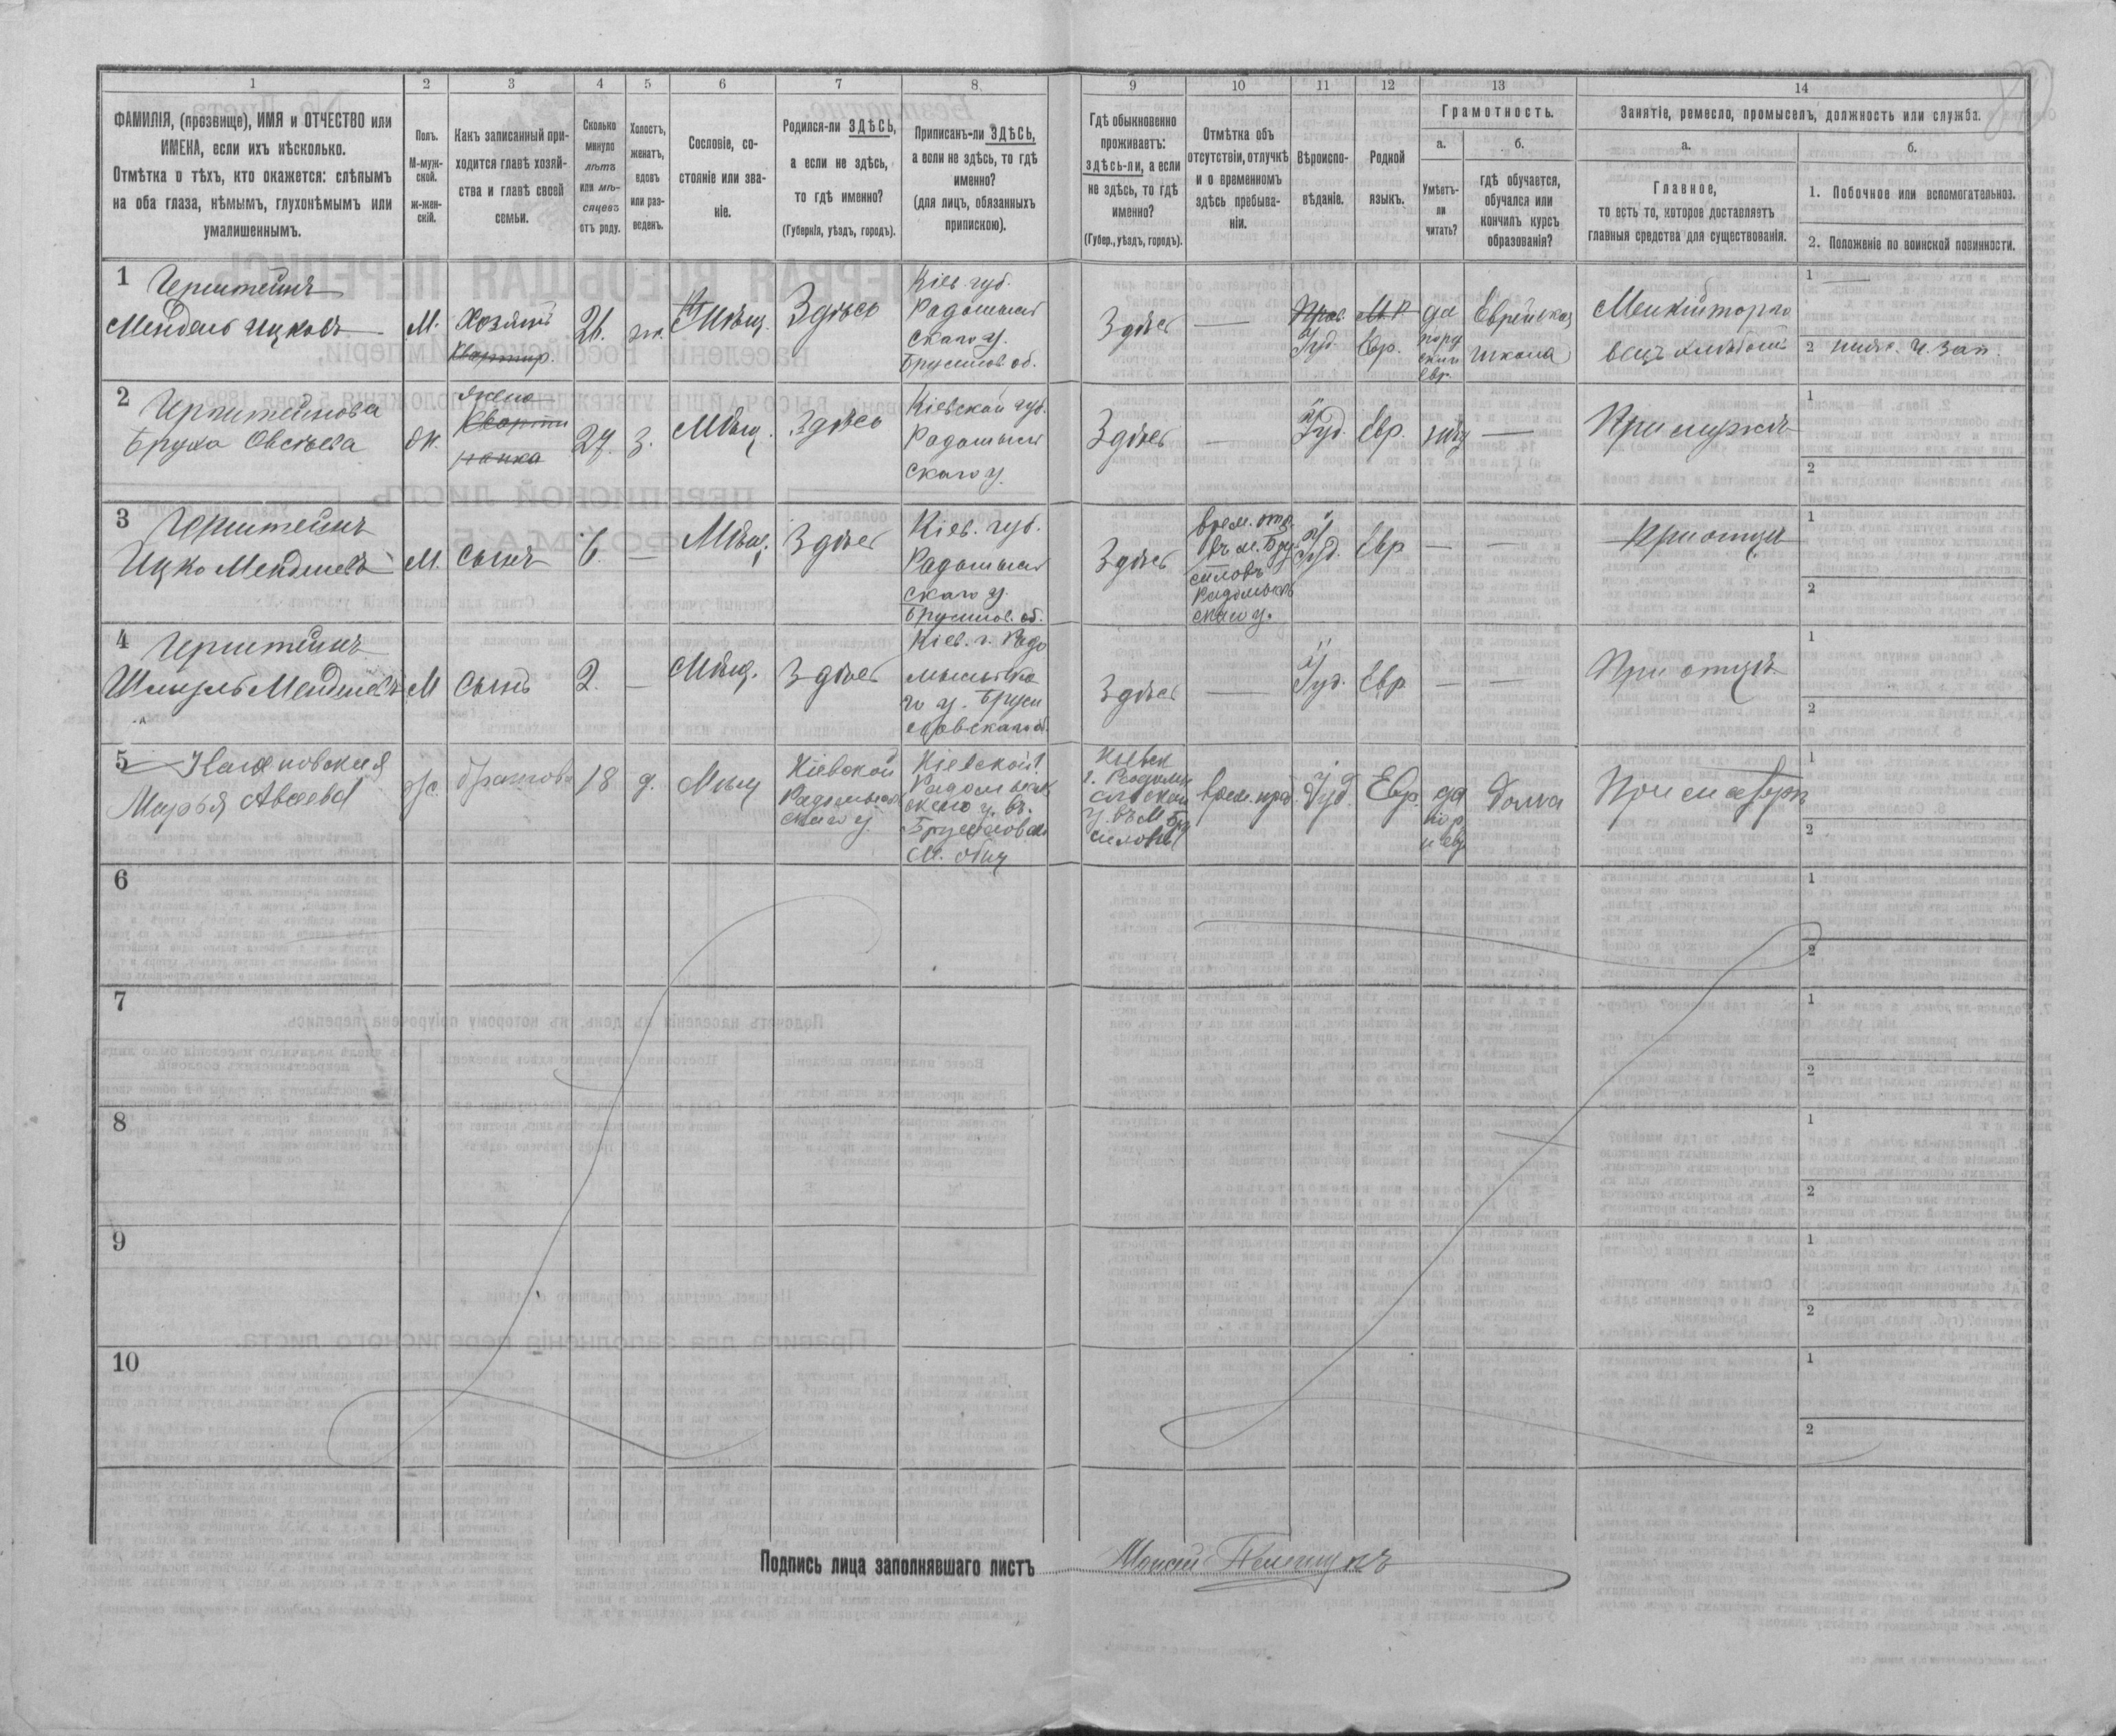 1
2
3
4
5
6
7
8
9
10
11
12
13
14
ФАМИЛІЯ, (прозвище), ИМЯ и ОТЧЕСТВО или
ИМЕНА, если ихъ нѣсколько.
Отмѣтка о тѣхъ, кто окажется: слѣпымъ
на оба глаза, нѣмымъ, глухонѣмымъ или
умалишеннымъ.
Полъ.
М-муж-
ской.
ж-жен-
скій.
Какъ записанный при-
ходится главѣ хозяй-
ства и главѣ своей
семьи.
Сколько
минуло
лѣтъ
или мѣ-
сяцевъ
отъ роду.
Холостъ,
женатъ,
вдовъ
или раз-
веденъ.
Сословіе, со-
стояніе или зва-
ніе.
Родился-ли ЗДѢСЬ,
а если не здѣсь,
то гдѣ именно?
(Губернія, уѣздъ, городъ).
Приписанъ-ли ЗДѢСЬ,
а если не здѣсь, то гдѣ
именно?
(для лицъ, обязанныхъ
припискою).
Гдѣ обыкновенно
проживаетъ:
здѣсь-ли, а если
не здѣсь, то гдѣ
именно?
(Губер., уѣздъ, городъ).
Отмѣтка объ
отсутствіи, отлучкѣ
и о временномъ
здѣсь пребыва-
ніи.
Вѣроиспо-
вѣданіе.
Родной
языкъ.
Грамотность.
а.
Умѣетъ-
ли
читать?
б.
гдѣ обучается,
обучался или
кончилъ курсъ
образованія?
Занятіе, ремесло, промыселъ, должность или служба.
а.
Главное,
то есть то, которое доставляетъ
главныя средства для существованія.
б.
1. Побочное или вспомогательное.
2. Положеніе по воинской повинности.
1 Герштейнъ
Мендель Ицковъ
М.
Хозяинъ
Квартир.
26.
Мѣщ.
Здѣсь
Кіев. губ.
Радомысль
скаго у.
Брусилов. об.
Здѣсь
—
Прав.
Іуд.
М. Р.
Евр.
да
Еврейская
школа
1 —
2
2 Герштейнова
Бруха Овсѣева
ж.
жена
27.
з.
Мѣщ.
Здѣсь
Кіевской губ.
Радомысль
скаго у.
Здѣсь
—
Іуд.
Евр.
нѣт
—
При мужѣ
1
2
3 Герштейнъ
Ицко Менделевъ
М.
сынъ
6.
—
Мѣщ.
Здѣсь
Кіев. губ.
Радомысль
скаго у.
Брусилов. об.
Здѣсь
врем. отл.
въ м. Бру
силовъ
Радомысль
скаго у.
Іуд.
Евр
—
—
При отцѣ
1
2
4 Герштейнъ
Шмуль Менделевъ
М
сынъ
2.
—
Мѣщ.
Здѣсь
Кіев. г. Радо
мысльска
го у. Бруси
ловскаго об.
Здѣсь
—
Іуд.
Евр
—
—
При отцѣ
1
2
5
Марья Авсеева
18
д.
Мѣщ
Кіевской
Радомысль
скаго у
Кіевской г.
Радомысль
скаго у. въ
Брусиловск
м. общ
Кіевск
г. Радомы
сльской
у. въ м Бру
силовѣ
врем. преб.
Іуд.
Евр.
да
Дома
При сестрѣ
1
2
6
1
2
7
1
2
8
1
2
9
1
2
10
1
2
Подпись лица заполнявшаго листъ